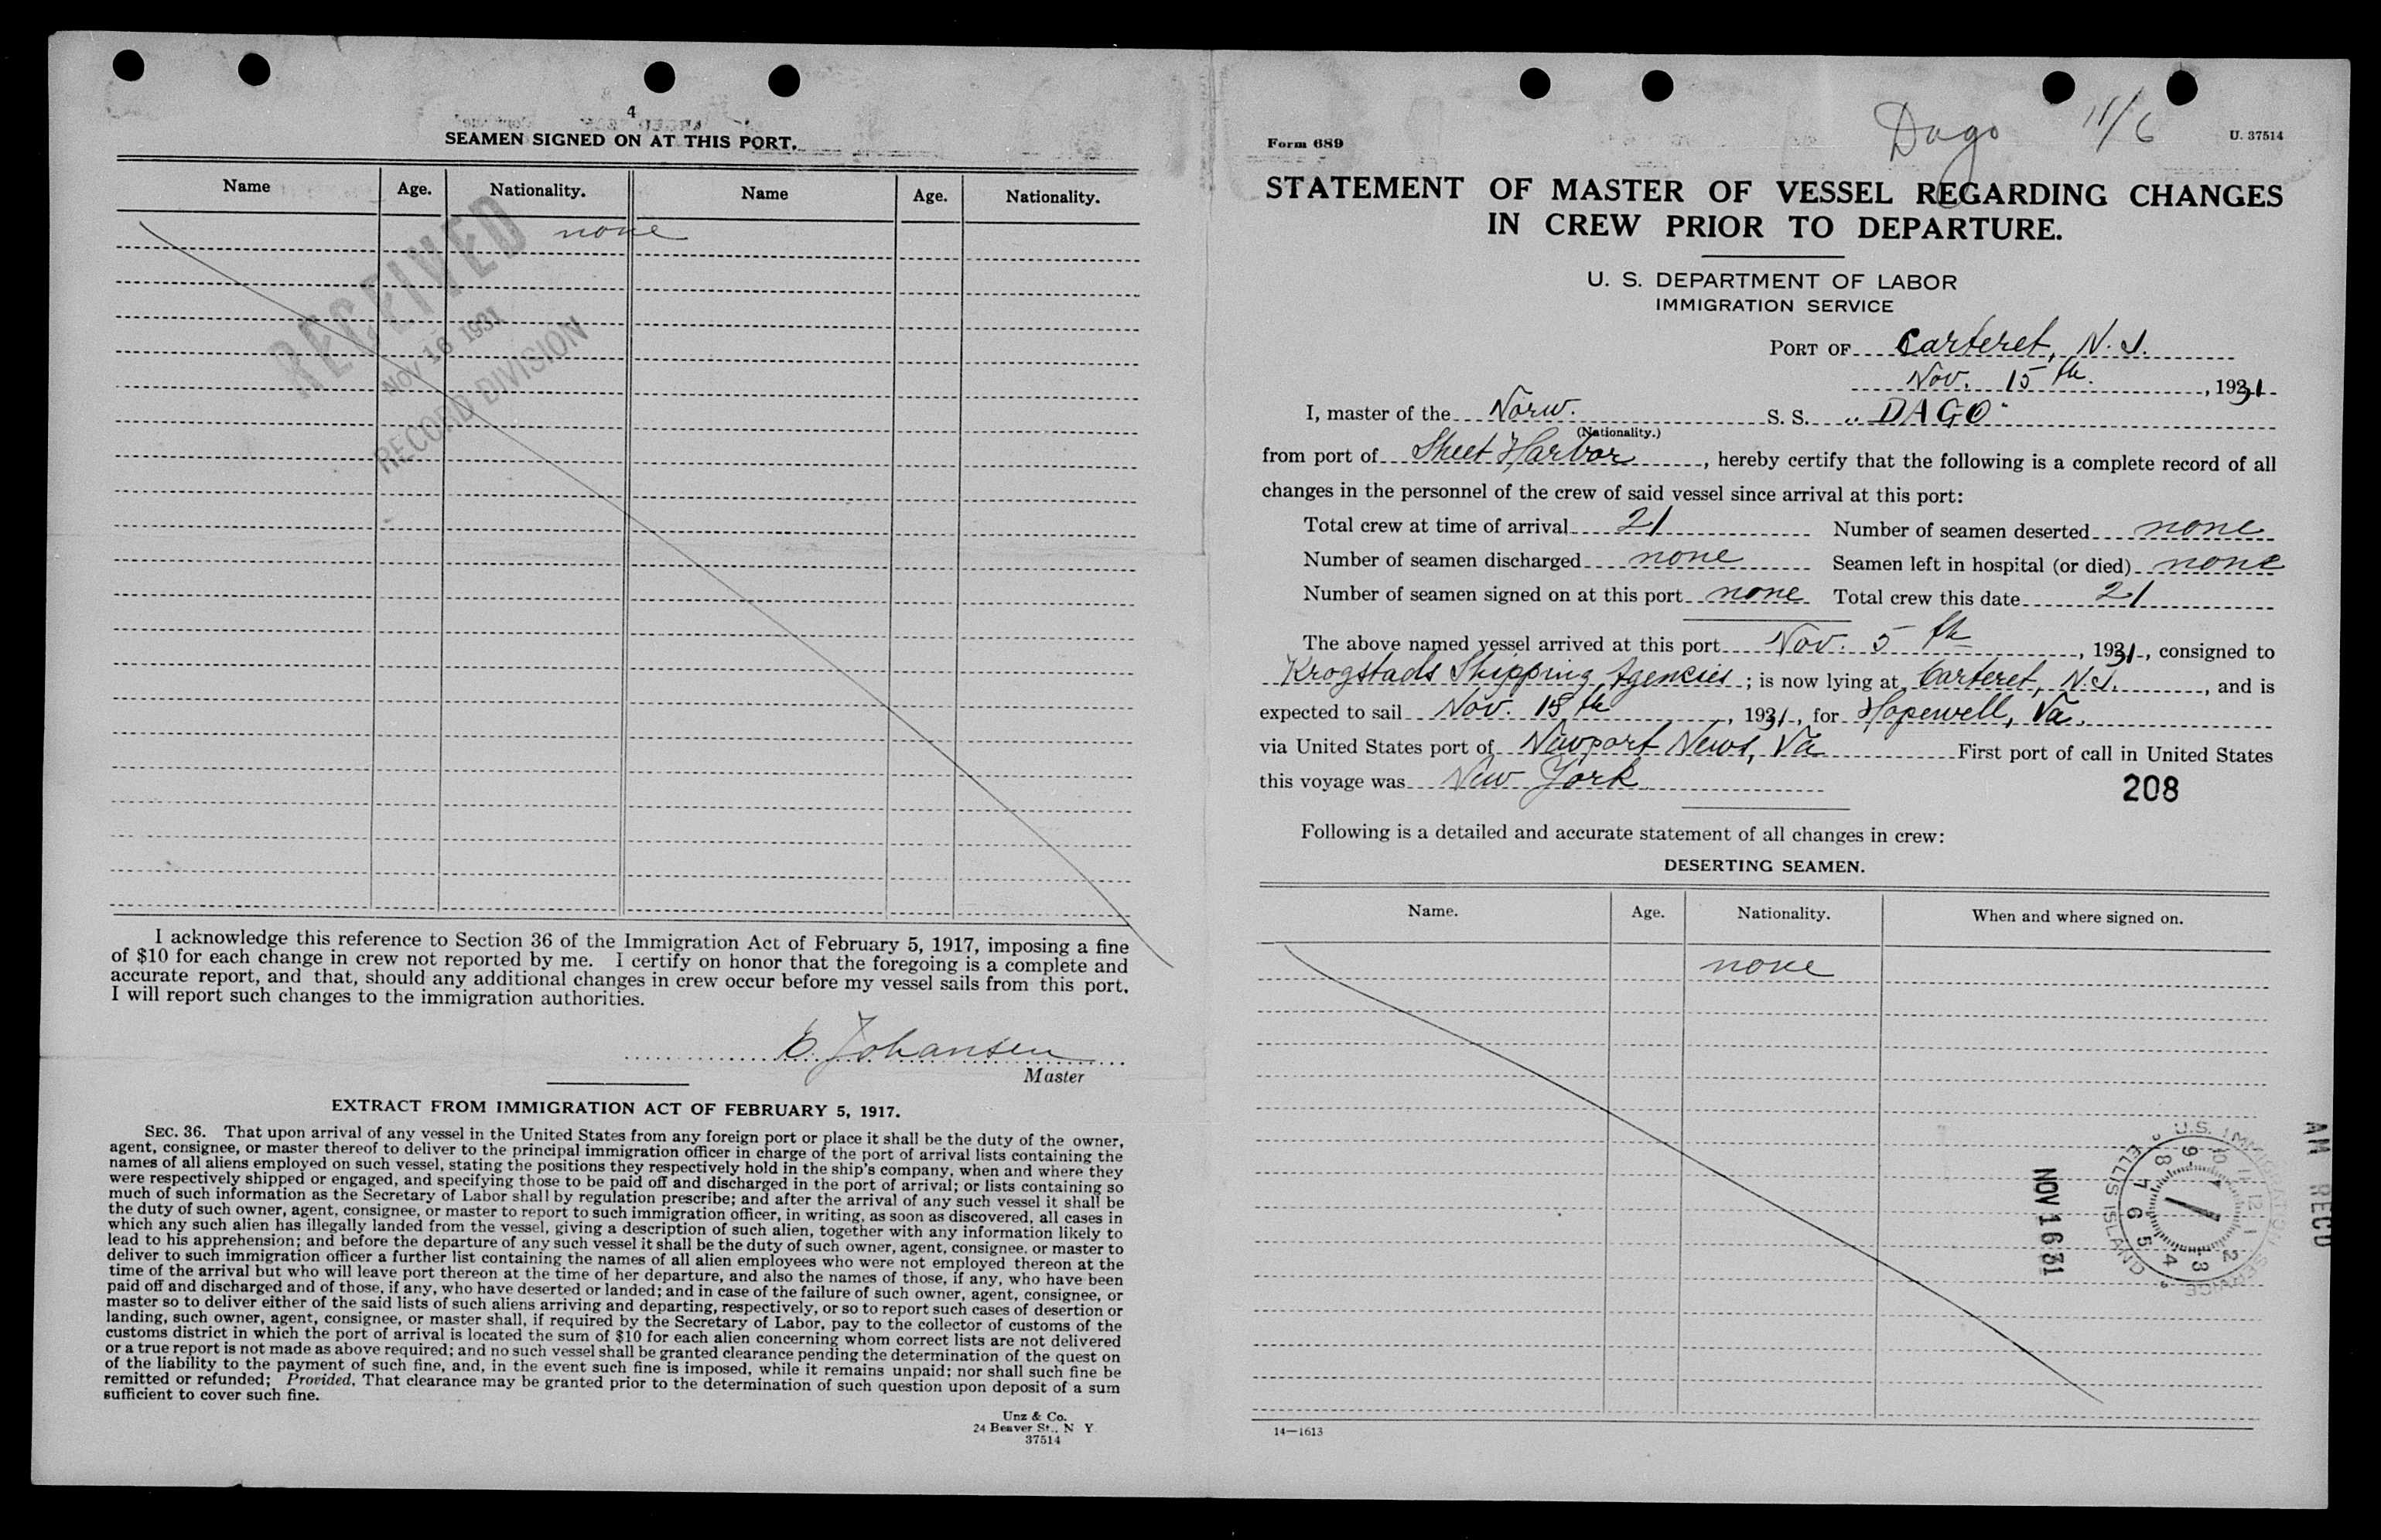 4
SEAMEN SIGNED ON AT THIS PORT.
Name Age. Nationality. Name Age. Nationality.
none
RECEIVED
NOV 16 1931
RECORD DIVISION
I acknowledge this reference to Section 36 of the Immigration Act of February 5, 1917, imposing a fine
of $10 for each change in crew not reported by me. I certify on honor that the foregoing is a complete and
accurate report, and that, should any additional changes in crew occur before my vessel sails from this port,
I will report such changes to the immigration authorities.
E. Johansen
Master
EXTRACT FROM IMMIGRATION ACT OF FEBRUARY 5, 1917.
SEC. 36. That upon arrival of any vessel in the United States from any foreign port or place it shall be the duty of the owner,
agent, consignee, or master thereof to deliver to the principal immigration officer in charge of the port of arrival lists containing the
names of all aliens employed on such vessel, stating the positions they respectively hold in the ship's company, when and where they
were respectively shipped or engaged, and specifying those to be paid off and discharged in the port of arrival; or lists containing so
much of such information as the Secretary of Labor shall by regulation prescribe; and after the arrival of any such vessel it shall be
the duty of such owner, agent, consignee, or master to report to such immigration officer, in writing, as soon as discovered, all cases in
which any such alien has illegally landed from the vessel, giving a description of such alien, together with any information likely to
lead to his apprehension; and before the departure of any such vessel it shall be the duty of such owner, agent, consignee. or master to
deliver to such immigration officer a further list containing the names of all alien employees who were not employed thereon at the
time of the arrival but who will leave port thereon at the time of her departure, and also the names of those, if any, who have been
paid off and discharged and of those, if any, who have deserted or landed; and in case of the failure of such owner, agent, consignee, or
master so to deliver either of the said lists of such aliens arriving and departing, respectively, or so to report such cases of desertion or
landing, such owner, agent, consignee, or master shall, if required by the Secretary of Labor, pay to the collector of customs of the
customs district in which the port of arrival is located the sum of $10 for each alien concerning whom correct lists are not delivered
or a true report is not made as above required; and no such vessel shall be granted clearance pending the determination of the quest on
of the liability to the payment of such fine, and, in the event such fine is imposed, while it remains unpaid; nor shall such fine be
remitted or refunded; Provided, That clearance may be granted prior to the determination of such question upon deposit of a sum
sufficient to cover such fine.
Unz & Co.
24 Beaver St., N Y
37514
Dago 11/6
Form 689 U. 37514
STATEMENT OF MASTER OF VESSEL REGARDING CHANGES
IN CREW PRIOR TO DEPARTURE.
U. S. DEPARTMENT OF LABOR
IMMIGRATION SERVICE
PORT OF Carteret, N. J.
Nov. 15th, 1931
I, master of the Norw. S. S. "DAGO"
(Nationality.)
from port of Sheet Harbor, hereby certify that the following is a complete record of all
changes in the personnel of the crew of said vessel since arrival at this port:
Total crew at time of arrival 21 Number of seamen deserted none
Number of seamen discharged none Seamen left in hospital (or died) none
Number of seamen signed on at this port none Total crew this date 21
The above named vessel arrived at this port Nov. 5th, 1931, consigned to
Krogstads Shipping Agencies; is now lying at Carteret, N.J., and is
expected to sail Nov. 15th, 1931, for Hopewell, Va.
via United States port of Newport News, Va First port of call in United States
this voyage was New York
208
Following is a detailed and accurate statement of all changes in crew:
DESERTING SEAMEN.
Name. Age. Nationality. When and where signed on.
none
U.S. IMMIGRATION SERVICE
ELLIS ISLAND
8 9 10 11 12 1 2 3 4 5 6 7
NOV 16 31
AM RECD
14—1613